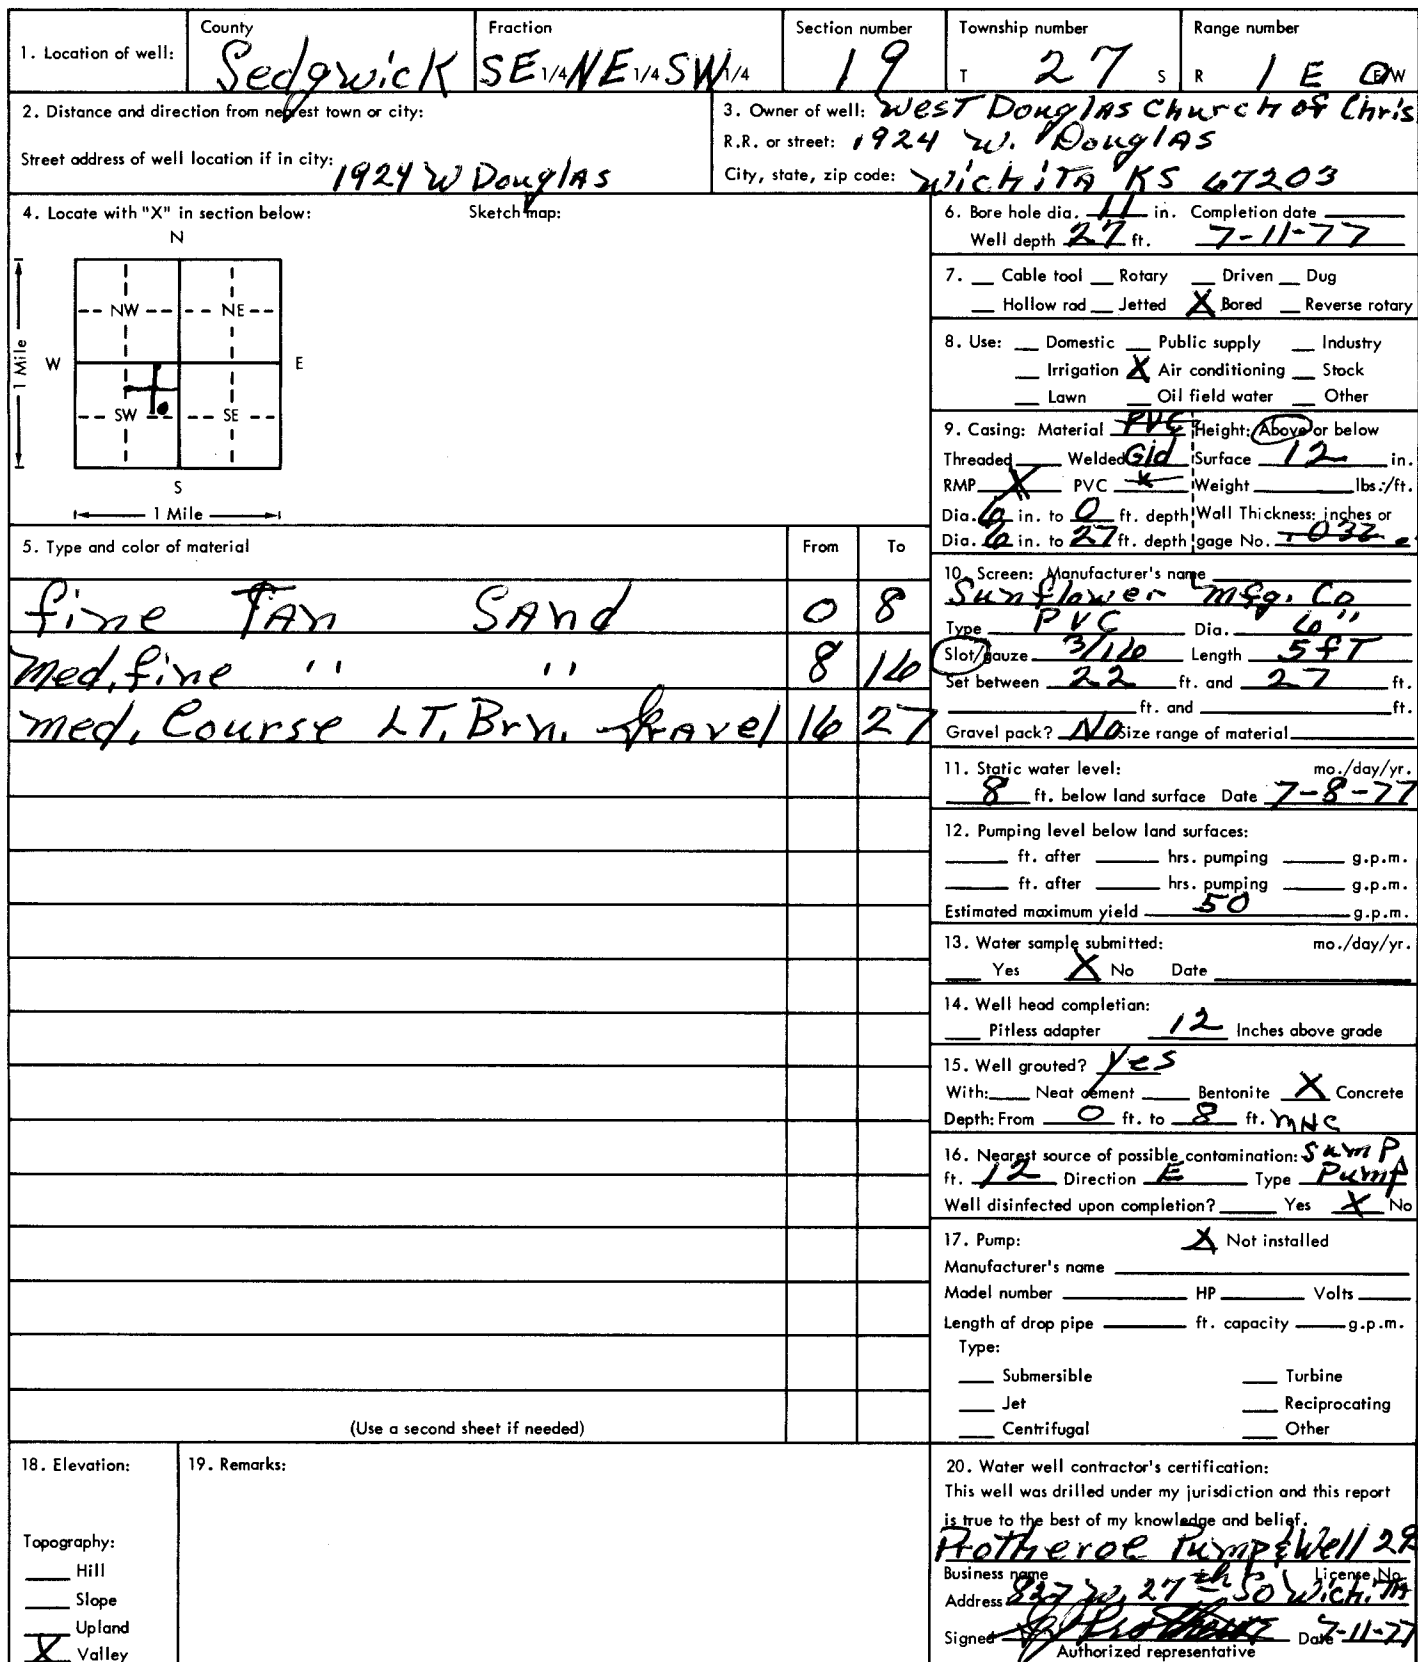 1. Location of well: County Sedgwick Fraction SE 1/4 NE 1/4 SW 1/4 Section number 19 Township number T 27 S Range number R 1 E E/W
2. Distance and direction from nearest town or city:
Street address of well location if in city: 1924 W Douglas
3. Owner of well: West Douglas Church of Chris
R.R. or street: 1924 W. Douglas
City, state, zip code: Wichita KS 67203
4. Locate with "X" in section below: Sketch map:
N
NW NE
W E
1 Mile
SW SE
S
1 Mile
5. Type and color of material From To
fine Tan Sand 0 8
med. fine " " 8 16
med. Course LT. Brn. Gravel 16 27
(Use a second sheet if needed)
6. Bore hole dia. 11 in. Completion date
Well depth 27 ft. 7-11-77
7. Cable tool Rotary Driven Dug
Hollow rod Jetted X Bored Reverse rotary
8. Use: Domestic Public supply Industry
Irrigation X Air conditioning Stock
Lawn Oil field water Other
9. Casing: Material PVC Height: Above or below
Threaded Welded Gld Surface 12 in.
RMP X PVC X Weight lbs./ft.
Dia. 6 in. to 0 ft. depth Wall Thickness: inches or
Dia. 6 in. to 27 ft. depth gage No. .032
10. Screen: Manufacturer's name
Sunflower Mfg. Co
Type PVC Dia. 6"
Slot/gauze 3/16 Length 5 fT
Set between 22 ft. and 27 ft.
ft. and ft.
Gravel pack? No Size range of material
11. Static water level: mo./day/yr.
8 ft. below land surface Date 7-8-77
12. Pumping level below land surfaces:
ft. after hrs. pumping g.p.m.
ft. after hrs. pumping g.p.m.
Estimated maximum yield 50 g.p.m.
13. Water sample submitted: mo./day/yr.
Yes X No Date
14. Well head completion:
Pitless adapter 12 Inches above grade
15. Well grouted? Yes
With: Neat cement Bentonite X Concrete
Depth: From 0 ft. to 8 ft. MNC
16. Nearest source of possible contamination: Sump
ft. 12 Direction E Type Pump
Well disinfected upon completion? Yes X No
17. Pump: X Not installed
Manufacturer's name
Model number HP Volts
Length of drop pipe ft. capacity g.p.m.
Type:
Submersible Turbine
Jet Reciprocating
Centrifugal Other
18. Elevation:
Topography:
Hill
Slope
Upland
X Valley
19. Remarks:
20. Water well contractor's certification:
This well was drilled under my jurisdiction and this report
is true to the best of my knowledge and belief.
Protheroe Pump & Well 29
Business name License No.
Address 827 W. 27th So Wichita
Signed Protheroe Date 7-11-77
Authorized representative